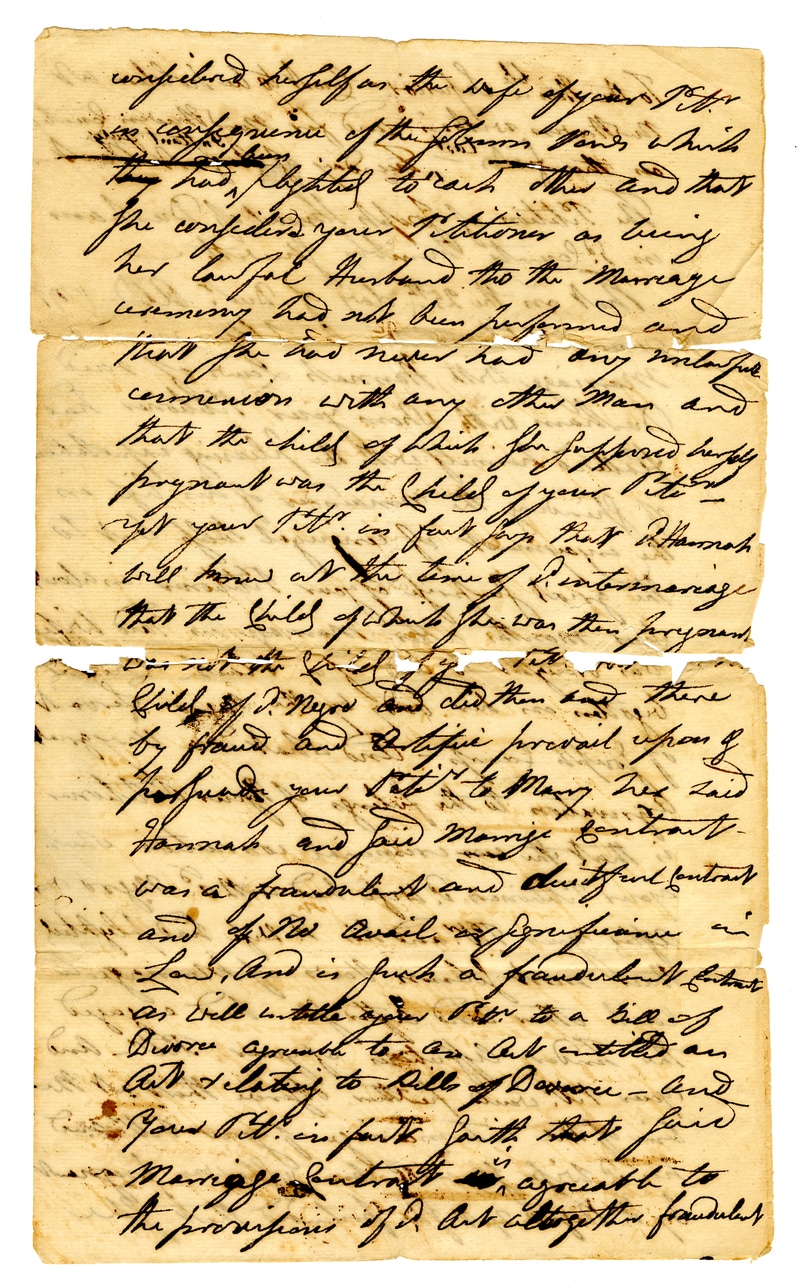 considered herself as the wife of your Petr.
in consequence of the solemn Vows which
they had been plighted to each other and that
She considered your Petitioner as being
her lawful Husband tho the Marriage
ceremony had not been performed and
that She had never had any unlawfull
connexion with any other Man and
that the child of which She supposed herself
pregnant was the Child of your Petr.
yet your Petr. in fact says that sd. Hannah
well knew at the time of sd. intermarriage
that the Child of which She was then pregnant
was not the Child of yr Petr.
Child of sd. Negro and did then and there
by fraud and Artifice prevail upon &
perswade your Petr. to Marry her said
Hannah and said Marrige Contract
was a fraudulent and deceitful Contract
and of No avail or Significance in
Law, And is Such a fraudulent Contract
as will intitle your Petr. to a Bill of
Divorce agreable to an Act entitled an
Act relating to Bills of Divorce – and
Your Petr. in fact saith that said
Marriage Contract is agreable to
the provisions of sd. Act altogether fraudulent